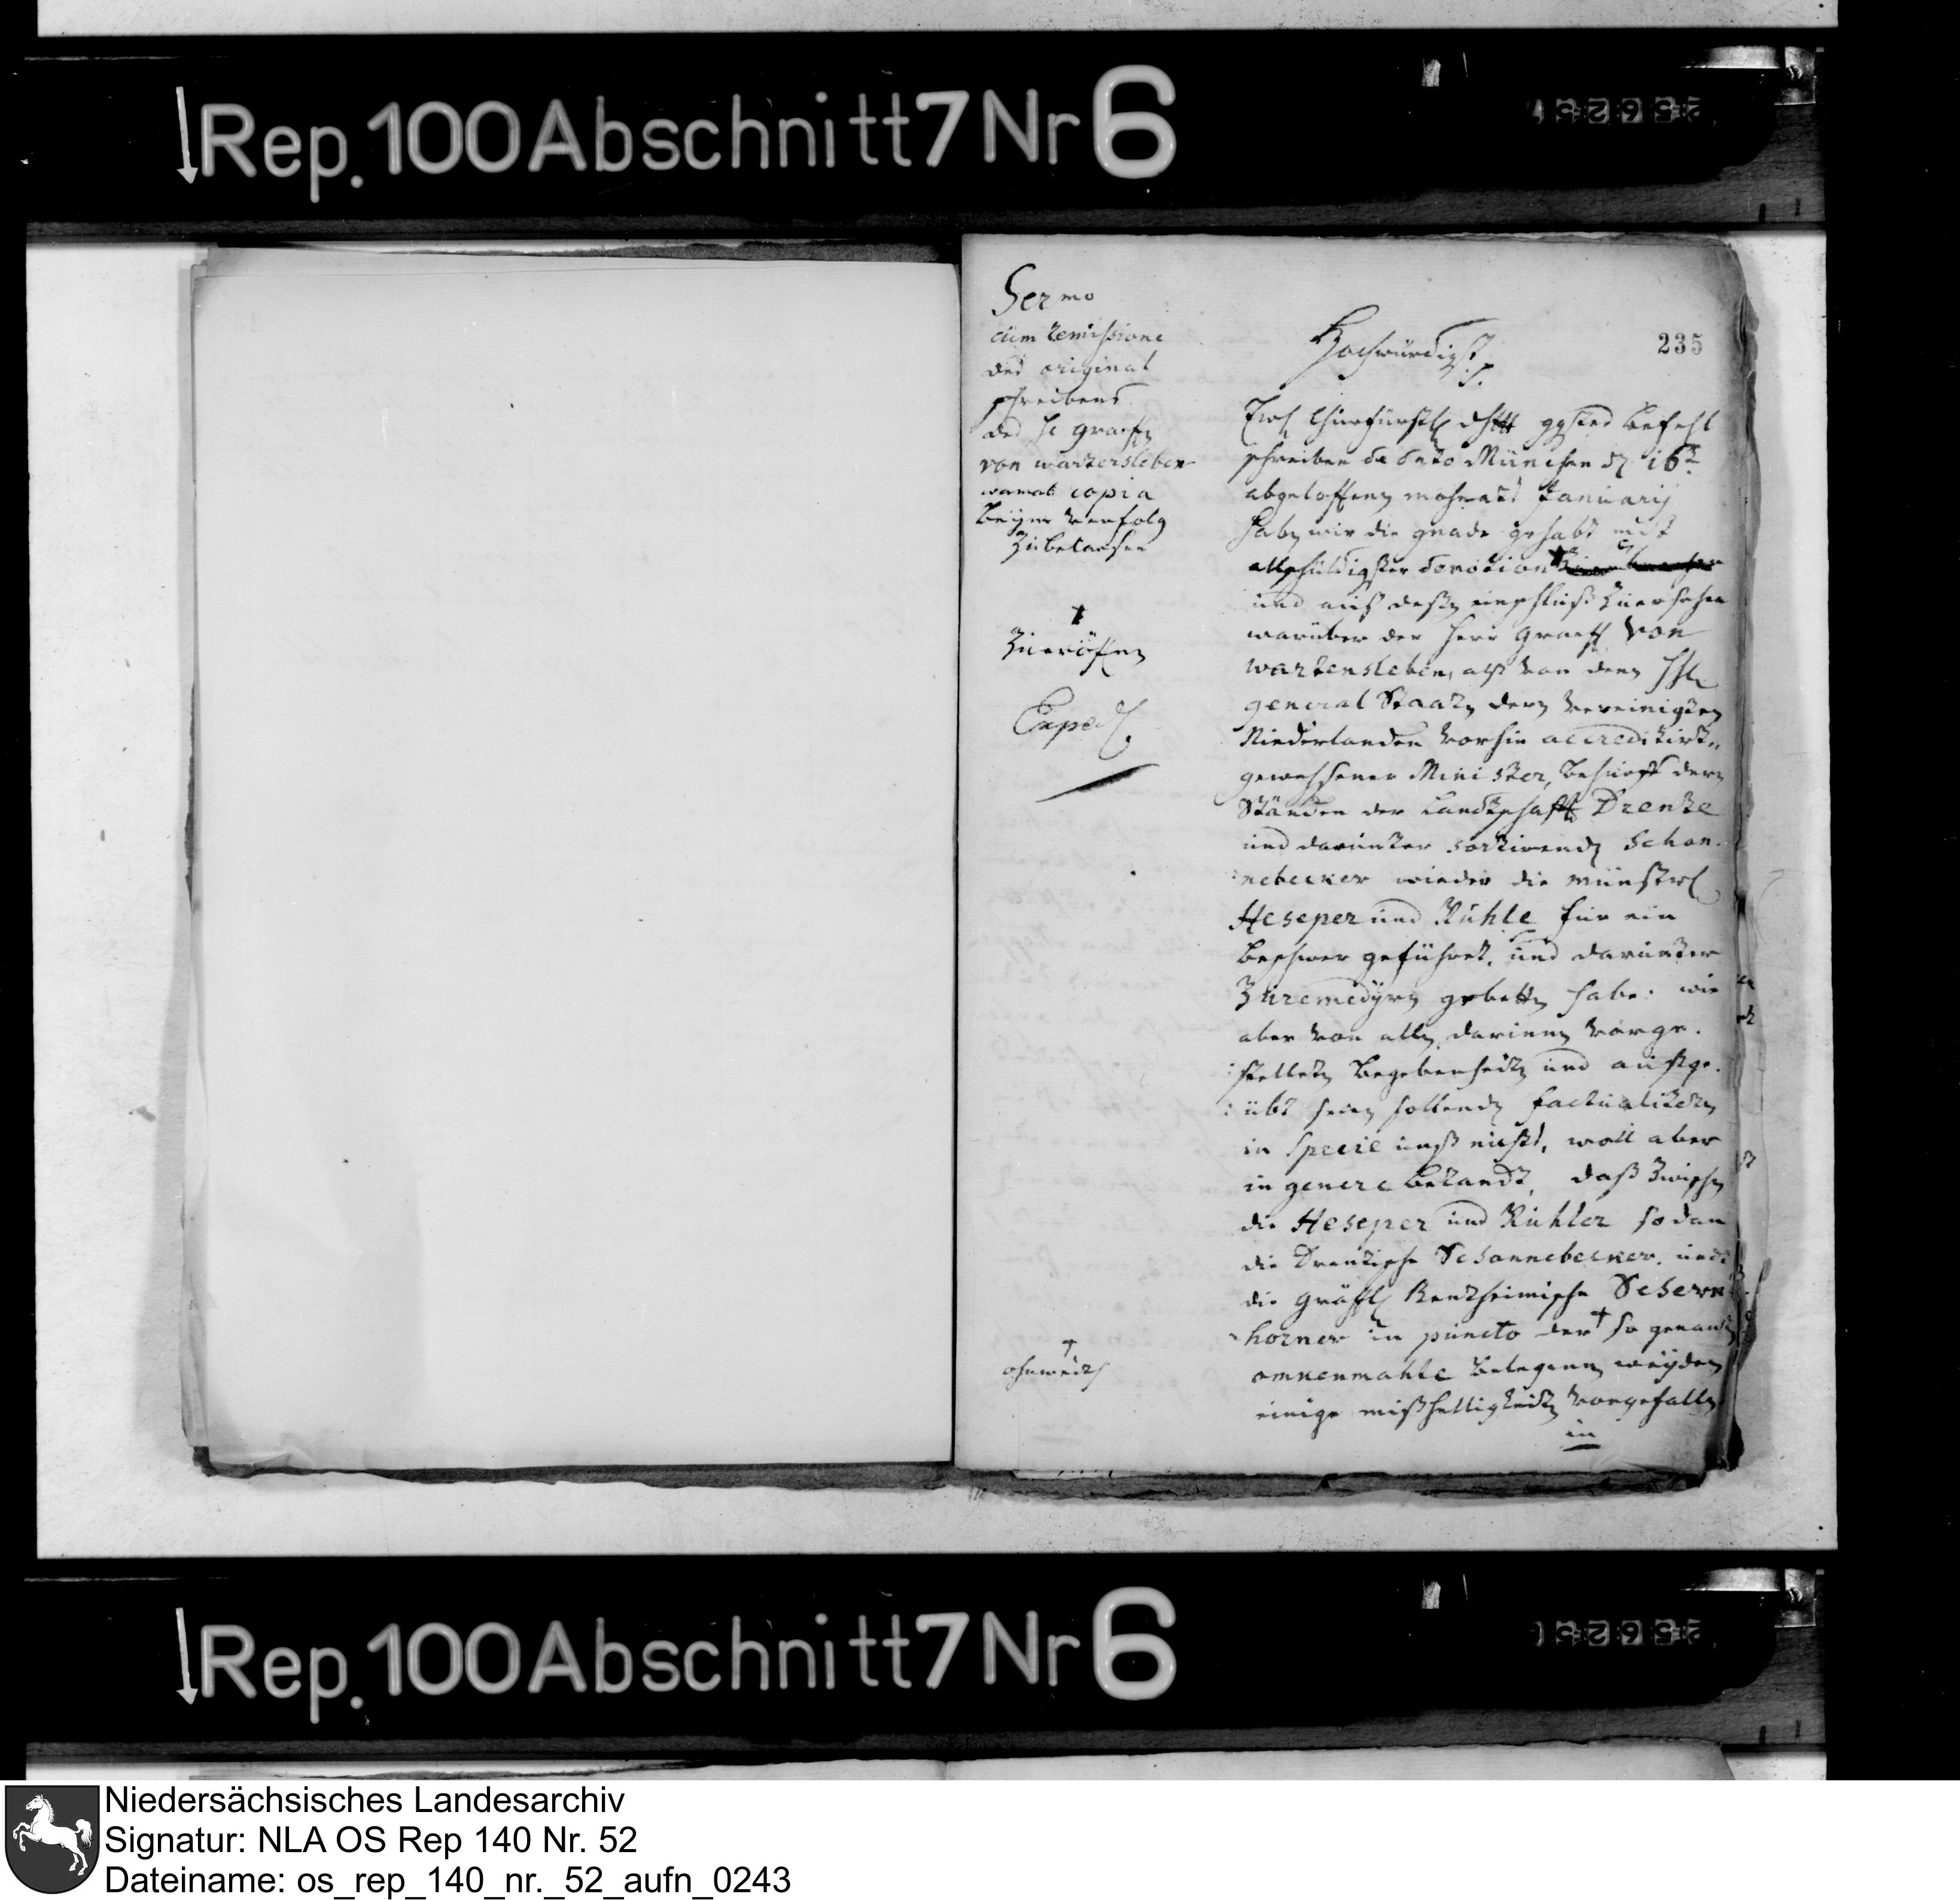 Rep. 100 Abschnitt 7 Nr 6
25625
Sermo
cum remissione
des original
schreibens
des H. Graffen
von wartensleben
wovon copia
beym verfolg
Zubelassen
Zueröffnen
Exped.
ohnweith
235
Hochwürdigst
p.
Ewr Churfürstl dhtt ggstes befehl
schreiben de dato München dn 16t
abgeloffenen mohnats Januarij
haben wir die gnade gehabt mit
allschuldigster devotion
und auß deßen einschluß Zuersehen
warüber der herr Graeff von
wartensleben, alß von denen HH
general Staaten deren vereinigten
Niederlanden vorhin accreditirt
gewehsener Minister, behueff deren
Ständen der Landtschafft Drente
und darunter sortirenden Schon
nebecker wieder die münstrl
Heseper und Rühle für ein
beschwer geführet, und darunter
Zuremedyren gebetten habe: wie
aber von allen darinnen vorge
stelleten begebenheiten und außge
übt sein sollenden factualiteten
in specie unß nichts, woll aber
in genere bekandt, daß Zwischen
die Heseper und Rühler so dan
die Drentische Schonnebecker und
die gräffl Bentheimische Schern
horner in puncto der so genandten
omnenmahle belegenen weyden
einige mißhelligkeiten vorgefallen
in
Rep. 100 Abschnitt 7 Nr 6
25625
Niedersächsisches Landesarchiv
Signatur: NLA OS Rep 140 Nr. 52
Dateiname: os_rep_140_nr._52_aufn_0243